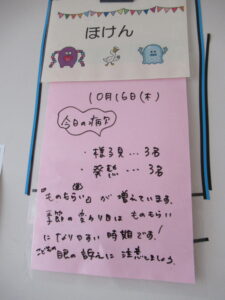 ほけん
10月16日(木)
今日の病欠
・様子見…3名
・発熱…3名
"ものもらい"が増えています。
季節の変わり目はものもらい
になりやすい時期です!
こどもの眼の訴えに注意しましょう。